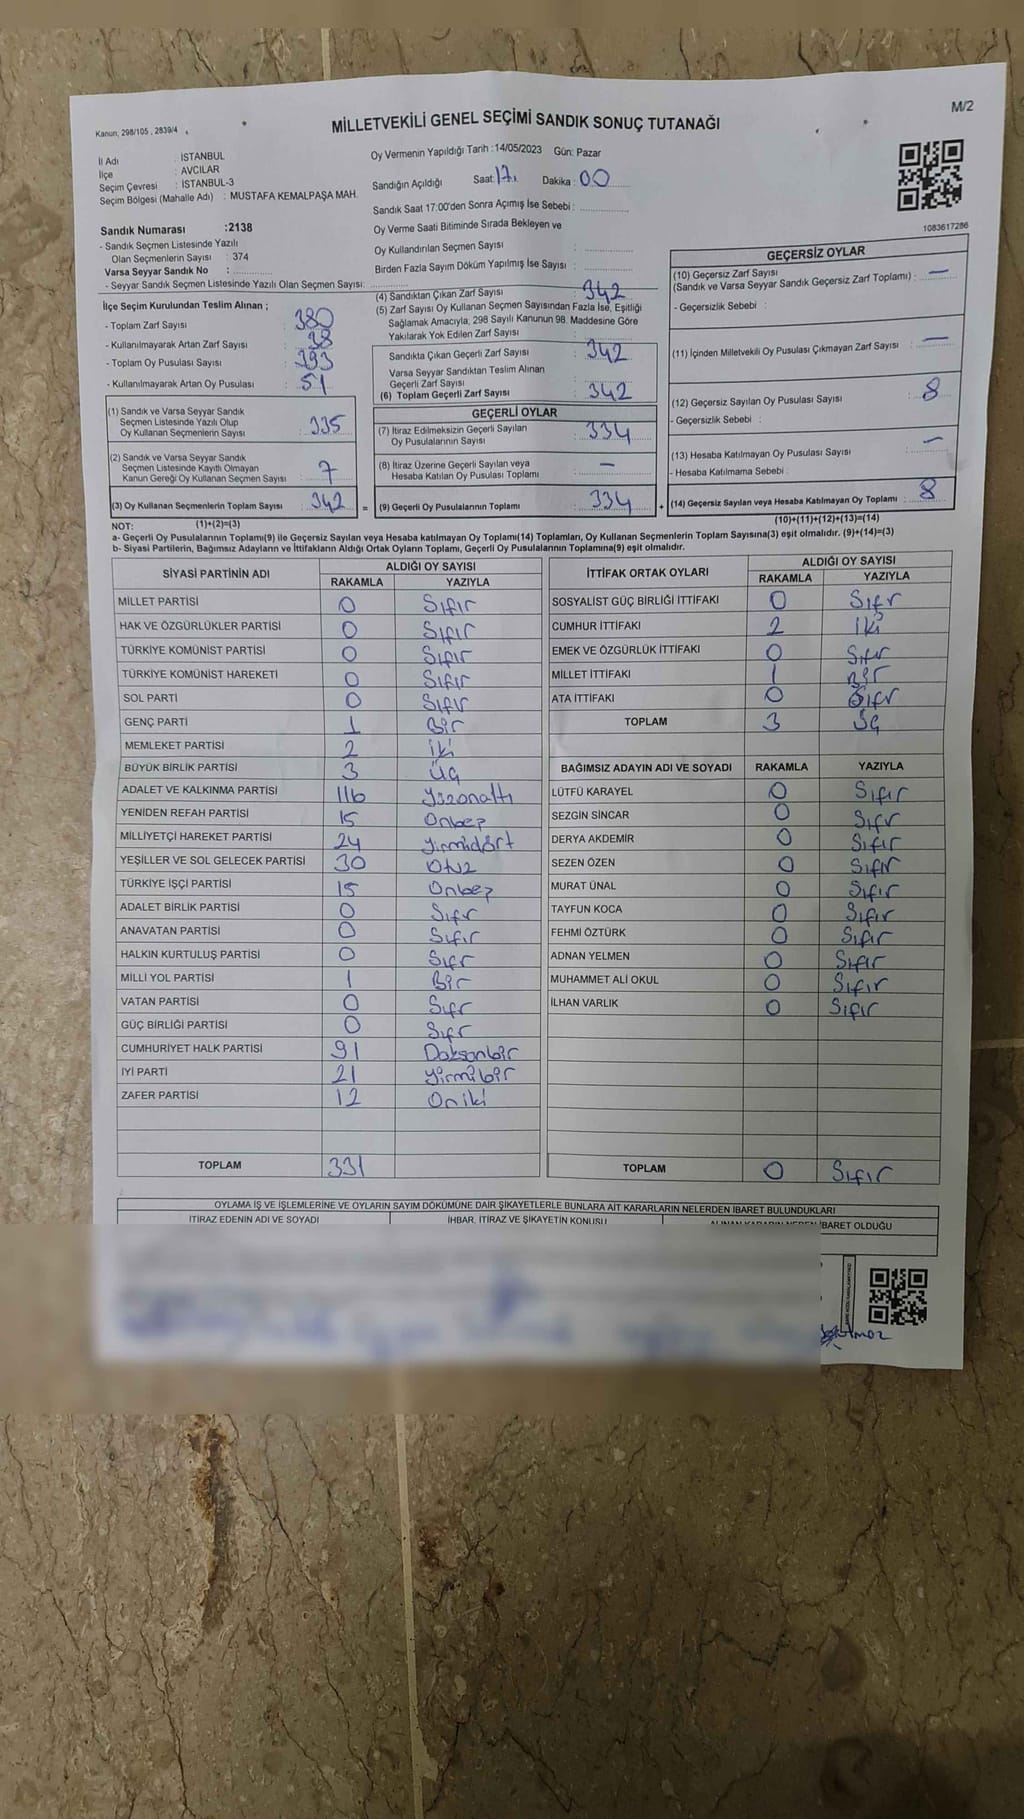 Kanun; 298/105 , 2839/4
MİLLETVEKİLİ GENEL SEÇİMİ SANDIK SONUÇ TUTANAĞI
M/2
İl Adı : İSTANBUL
İlçe : AVCILAR
Seçim Çevresi : İSTANBUL-3
Seçim Bölgesi (Mahalle Adı) : MUSTAFA KEMALPAŞA MAH.
Oy Vermenin Yapıldığı Tarih :14/05/2023 Gün: Pazar
Sandığın Açıldığı Saat: 17. Dakika : 00
Sandık Saat 17:00'den Sonra Açımış İse Sebebi :
Oy Verme Saati Bitiminde Sırada Bekleyen ve
Oy Kullandırılan Seçmen Sayısı :
Birden Fazla Sayım Döküm Yapılmış İse Sayısı :
1083617286
Sandık Numarası :2138
- Sandık Seçmen Listesinde Yazılı
Olan Seçmenlerin Sayısı : 374
Varsa Seyyar Sandık No :
- Seyyar Sandık Seçmen Listesinde Yazılı Olan Seçmen Sayısı:
İlçe Seçim Kurulundan Teslim Alınan ;
- Toplam Zarf Sayısı : 380
- Kullanılmayarak Artan Zarf Sayısı : 38
- Toplam Oy Pusulası Sayısı : 393
- Kullanılmayarak Artan Oy Pusulası : 51
(1) Sandık ve Varsa Seyyar Sandık
Seçmen Listesinde Yazılı Olup
Oy Kullanan Seçmenlerin Sayısı : 335
(2) Sandık ve Varsa Seyyar Sandık
Seçmen Listesinde Kayıtlı Olmayan
Kanun Gereği Oy Kullanan Seçmen Sayısı : 7
(3) Oy Kullanan Seçmenlerin Toplam Sayısı : 342 =
(4) Sandıktan Çıkan Zarf Sayısı : 342
(5) Zarf Sayısı Oy Kullanan Seçmen Sayısından Fazla İse, Eşitliği
Sağlamak Amacıyla, 298 Sayılı Kanunun 98. Maddesine Göre
Yakılarak Yok Edilen Zarf Sayısı :
Sandıkta Çıkan Geçerli Zarf Sayısı : 342
Varsa Seyyar Sandıktan Teslim Alınan
Geçerli Zarf Sayısı :
(6) Toplam Geçerli Zarf Sayısı : 342
GEÇERLİ OYLAR
(7) İtiraz Edilmeksizin Geçerli Sayılan
Oy Pusulalarının Sayısı : 334
(8) İtiraz Üzerine Geçerli Sayılan veya
Hesaba Katılan Oy Pusulası Toplamı : —
(9) Geçerli Oy Pusulalarının Toplamı : 334 +
GEÇERSİZ OYLAR
(10) Geçersiz Zarf Sayısı
(Sandık ve Varsa Seyyar Sandık Geçersiz Zarf Toplamı) : —
- Geçersizlik Sebebi :
(11) İçinden Milletvekili Oy Pusulası Çıkmayan Zarf Sayısı : —
(12) Geçersiz Sayılan Oy Pusulası Sayısı : 8
- Geçersizlik Sebebi :
(13) Hesaba Katılmayan Oy Pusulası Sayısı : —
- Hesaba Katılmama Sebebi :
(14) Geçersiz Sayılan veya Hesaba Katılmayan Oy Toplamı : 8
NOT: (1)+(2)=(3)
(10)+(11)+(12)+(13)=(14)
a- Geçerli Oy Pusulalarının Toplamı(9) ile Geçersiz Sayılan veya Hesaba katılmayan Oy Toplamı(14) Toplamları, Oy Kullanan Seçmenlerin Toplam Sayısına(3) eşit olmalıdır. (9)+(14)=(3)
b- Siyasi Partilerin, Bağımsız Adayların ve İttifakların Aldığı Ortak Oyların Toplamı, Geçerli Oy Pusulalarının Toplamına(9) eşit olmalıdır.
SİYASİ PARTİNİN ADI ALDIĞI OY SAYISI
RAKAMLA YAZIYLA
MİLLET PARTİSİ 0 Sıfır
HAK VE ÖZGÜRLÜKLER PARTİSİ 0 Sıfır
TÜRKİYE KOMÜNİST PARTİSİ 0 Sıfır
TÜRKİYE KOMÜNİST HAREKETİ 0 Sıfır
SOL PARTİ 0 Sıfır
GENÇ PARTİ 1 Bir
MEMLEKET PARTİSİ 2 iki
BÜYÜK BİRLİK PARTİSİ 3 Üç
ADALET VE KALKINMA PARTİSİ 116 Yüzonaltı
YENİDEN REFAH PARTİSİ 15 Onbeş
MİLLİYETÇİ HAREKET PARTİSİ 24 Yirmidört
YEŞİLLER VE SOL GELECEK PARTİSİ 30 Otuz
TÜRKİYE İŞÇİ PARTİSİ 15 Onbeş
ADALET BİRLİK PARTİSİ 0 Sıfır
ANAVATAN PARTİSİ 0 Sıfır
HALKIN KURTULUŞ PARTİSİ 0 Sıfır
MİLLİ YOL PARTİSİ 1 Bir
VATAN PARTİSİ 0 Sıfır
GÜÇ BİRLİĞİ PARTİSİ 0 Sıfır
CUMHURİYET HALK PARTİSİ 91 Doksanbir
İYİ PARTİ 21 Yirmibir
ZAFER PARTİSİ 12 Oniki
TOPLAM 331
İTTİFAK ORTAK OYLARI ALDIĞI OY SAYISI
RAKAMLA YAZIYLA
SOSYALİST GÜÇ BİRLİĞİ İTTİFAKI 0 Sıfır
CUMHUR İTTİFAKI 2 İki
EMEK VE ÖZGÜRLÜK İTTİFAKI 0 Sıfır
MİLLET İTTİFAKI 1 Bir
ATA İTTİFAKI 0 Sıfır
TOPLAM 3 Üç
BAĞIMSIZ ADAYIN ADI VE SOYADI RAKAMLA YAZIYLA
LÜTFÜ KARAYEL 0 Sıfır
SEZGİN SİNCAR 0 Sıfır
DERYA AKDEMİR 0 Sıfır
SEZEN ÖZEN 0 Sıfır
MURAT ÜNAL 0 Sıfır
TAYFUN KOCA 0 Sıfır
FEHMİ ÖZTÜRK 0 Sıfır
ADNAN YELMEN 0 Sıfır
MUHAMMET ALİ OKUL 0 Sıfır
İLHAN VARLIK 0 Sıfır
TOPLAM 0 Sıfır
OYLAMA İŞ VE İŞLEMLERİNE VE OYLARIN SAYIM DÖKÜMÜNE DAİR ŞİKAYETLERLE BUNLARA AİT KARARLARIN NELERDEN İBARET BULUNDUKLARI
İTİRAZ EDENİN ADI VE SOYADI İHBAR, İTİRAZ VE ŞİKAYETİN KONUSU ALINAN KARARIN NEDEN İBARET OLDUĞU